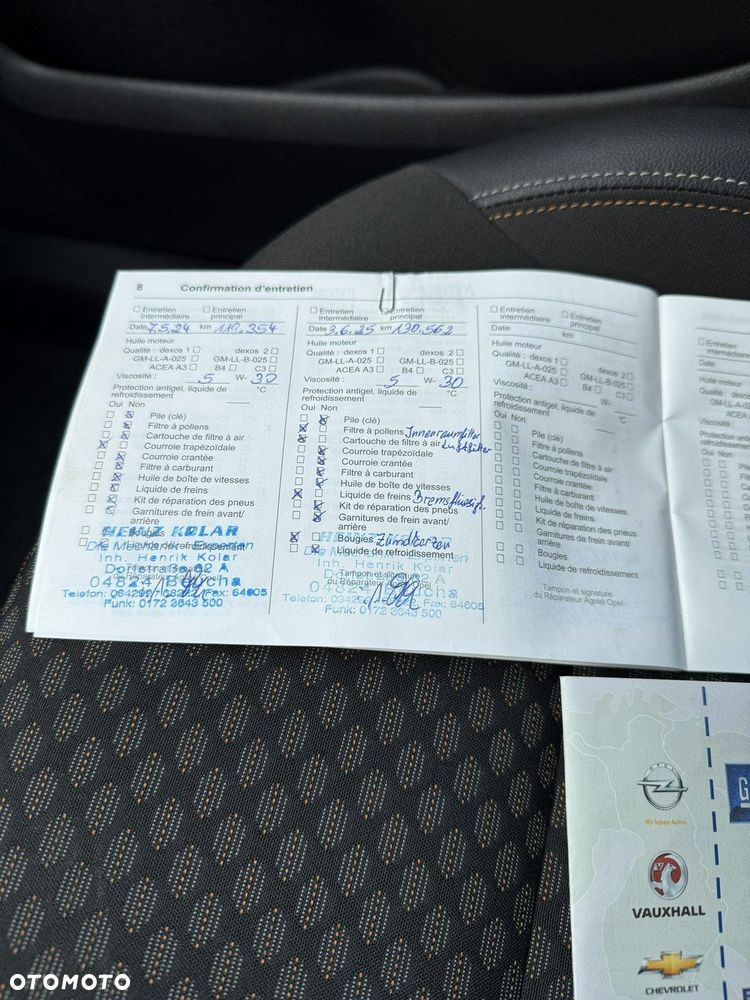 8 Confirmation d'entretien
Entretien intermédiaire Entretien principal
Date 7.5.24 km 119.254
Huile moteur
Qualité : dexos 1 dexos 2
GM-LL-A-025 GM-LL-B-025
ACEA A3 B4 C3
Viscosité : 5 W- 30
Protection antigel, liquide de
refroidissement °C
Oui Non
Pile (clé)
Filtre à pollens
Cartouche de filtre à air
Courroie trapézoïdale
Courroie crantée
Filtre à carburant
Huile de boîte de vitesses
Liquide de freins
Kit de réparation des pneus
Garnitures de frein avant/
arrière
Bougies
HEINZ KOLAR
Inh. Henrik Kolar
Fax: 64605
Funk: 0172 3643 500
Entretien intermédiaire Entretien principal
Date 3.6.25 km 130.562
Huile moteur
Qualité : dexos 1 dexos 2
GM-LL-A-025 GM-LL-B-025
ACEA A3 B4 C3
Viscosité : 5 W- 30
Protection antigel, liquide de
refroidissement °C
Oui Non
Pile (clé)
Filtre à pollens Innenraumfilter
Cartouche de filtre à air Luftfilter
Courroie trapézoïdale
Courroie crantée
Filtre à carburant
Huile de boîte de vitesses
Liquide de freins Bremsflüssigk.
Kit de réparation des pneus
Garnitures de frein avant/
arrière
Bougies Zündkerzen
Liquide de refroidissement
Inh. Henrik Kolar
Tampon et signature
du Réparateur Agréé Opel
Fax: 64605
Funk: 0172 3643 500
Entretien intermédiaire Entretien principal
Date km
Huile moteur
Qualité : dexos 1 dexos 2
GM-LL-A-025 GM-LL-B-025
ACEA A3 B4 C3
Viscosité : W-
Protection antigel, liquide de
refroidissement °C
Oui Non
Pile (clé)
Filtre à pollens
Cartouche de filtre à air
Courroie trapézoïdale
Courroie crantée
Filtre à carburant
Huile de boîte de vitesses
Liquide de freins
Kit de réparation des pneus
Garnitures de frein avant/
arrière
Bougies
Liquide de refroidissement
Tampon et signature
du Réparateur Agréé Opel
Entretien
intermédiaire
Date
Huile moteur
Qualité : dexos
GM-LL-A
ACEA
Viscosité :
Protection
refroidissement
Oui Non
OPEL
Wir leben Autos.
VAUXHALL
CHEVROLET
OTOMOTO